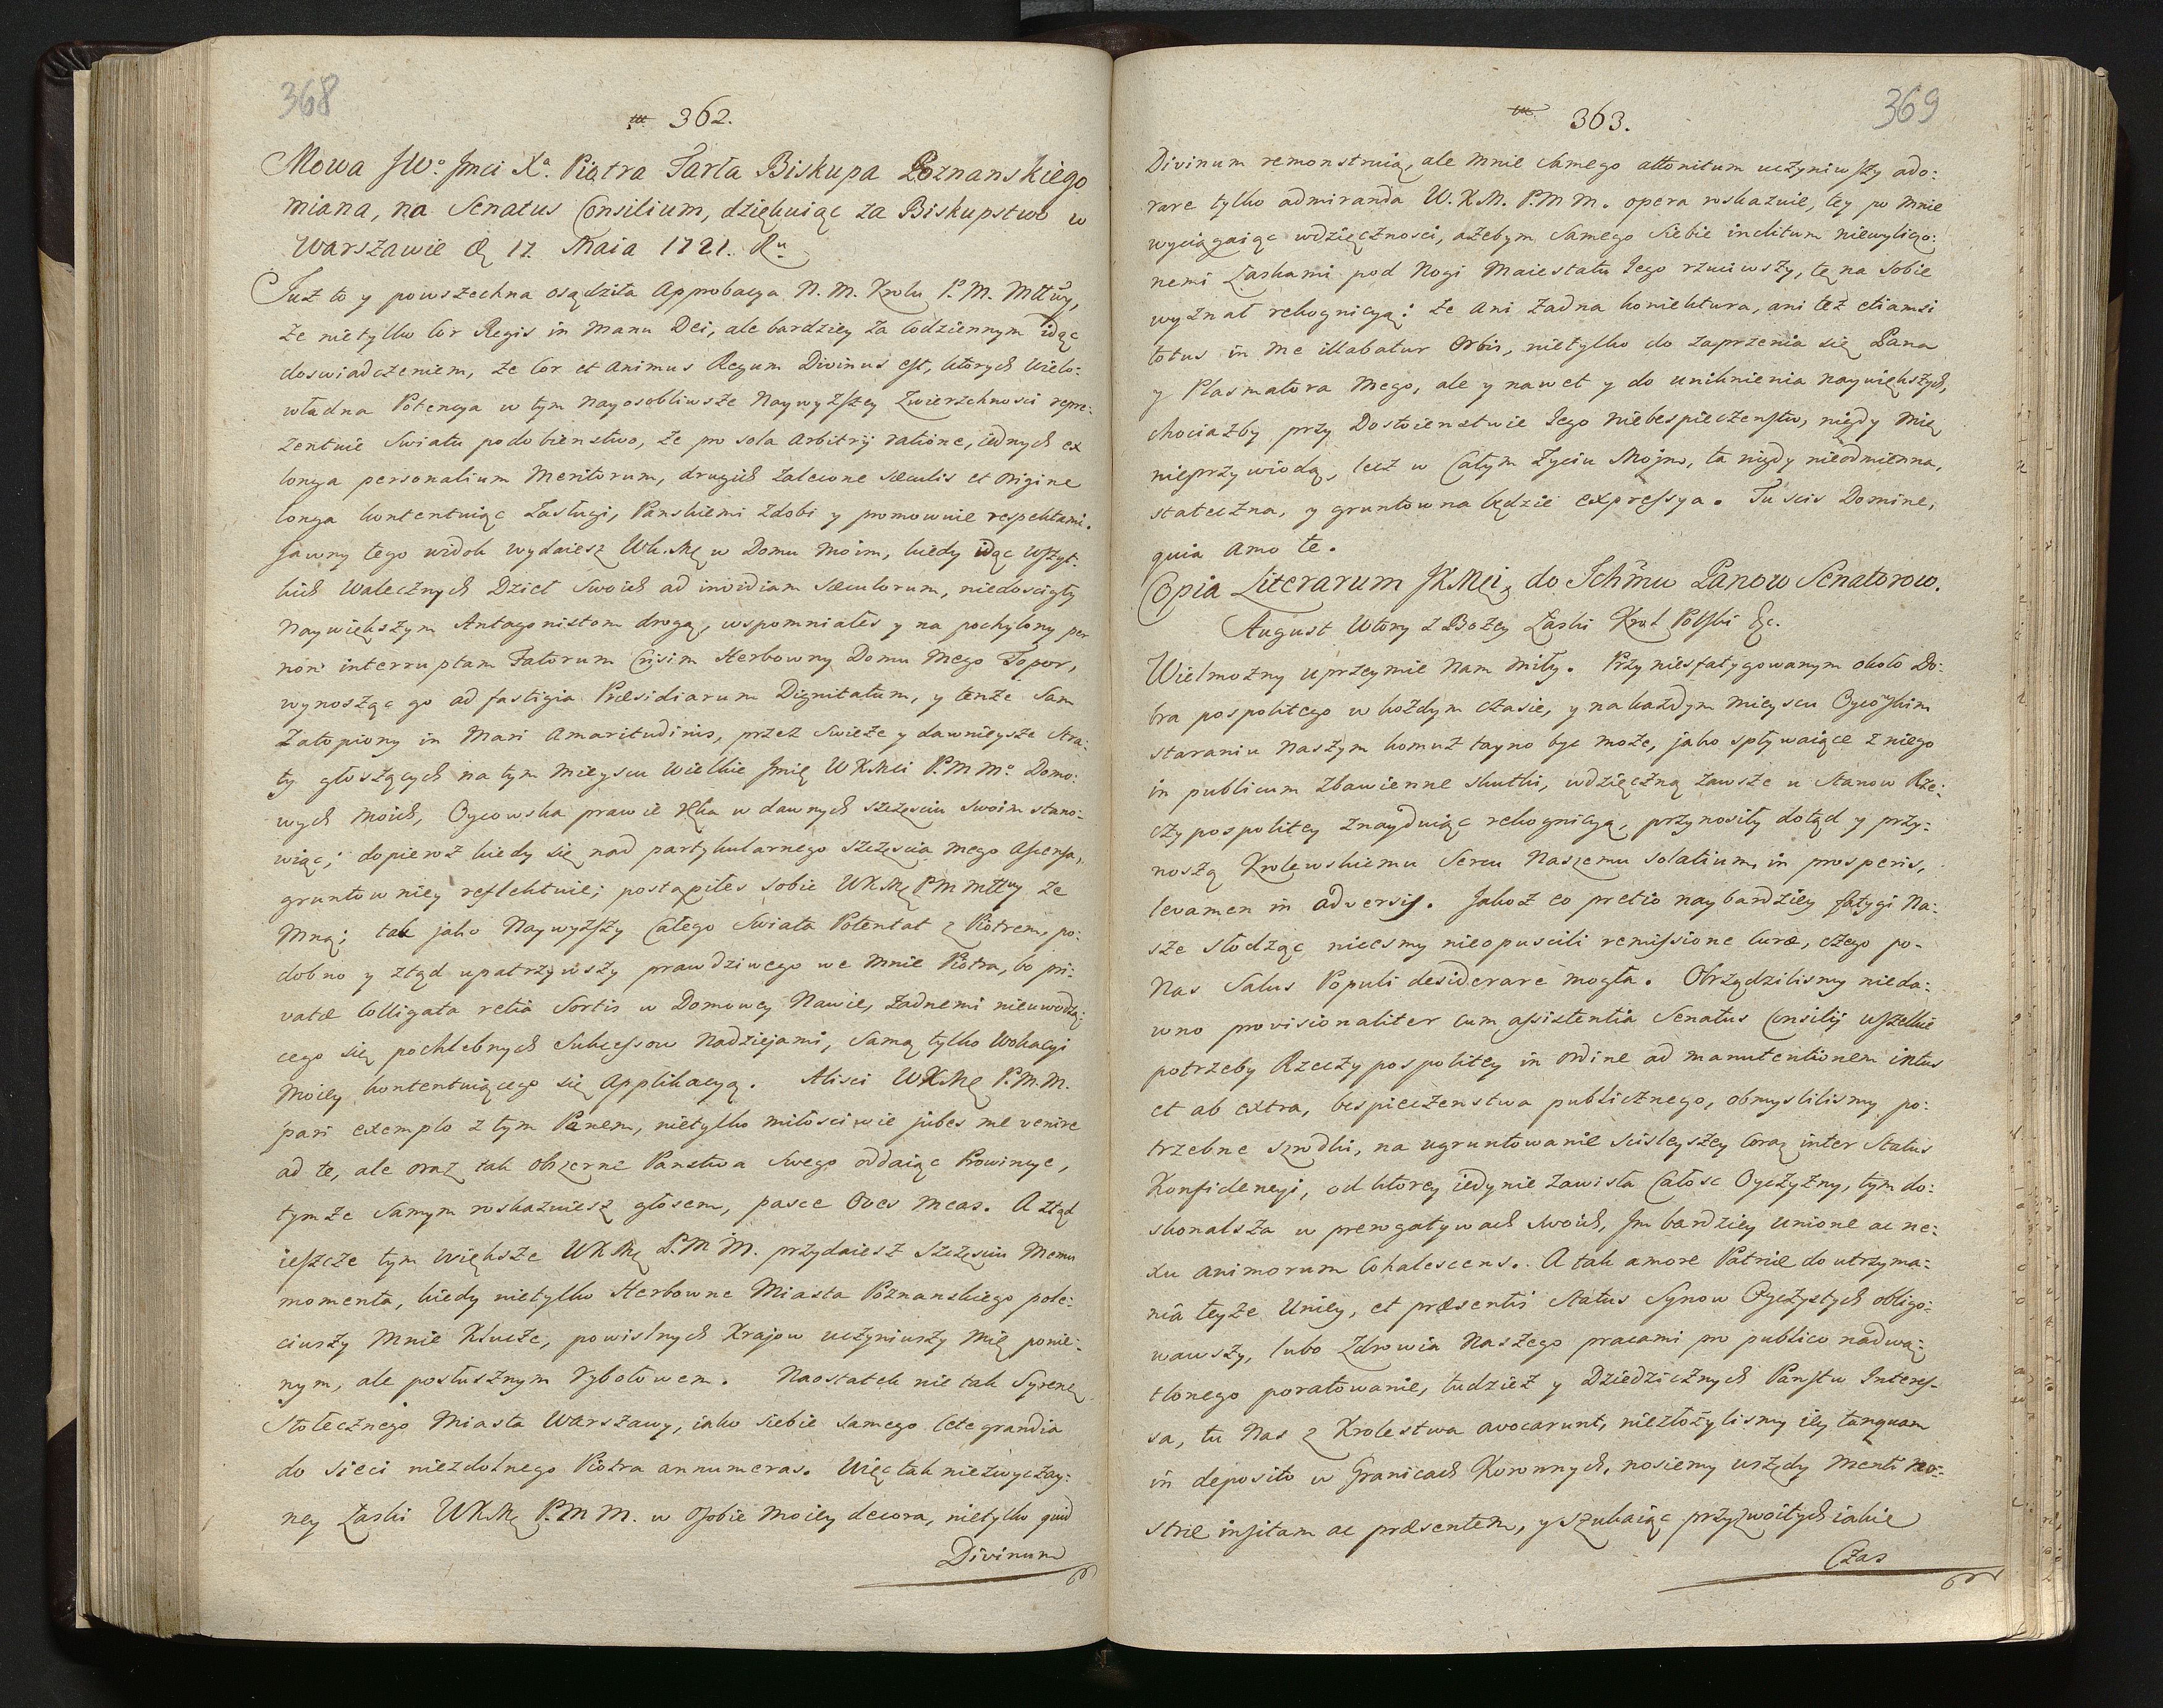 368
362.
Mowa JWº Jmci Xª. Piotra Tarła Biskupa Poznanskiego
miana, na Senatus Consilium, dziękuiąc za Biskupstwo w
Warszawie 17. Maia 1721. Ru
Juz to y powszechna osądziła Approbacya N. M. Krolu P. M. Mttwy,
że nietylko Cor Regis in manu Dei, ale bardziey za codziennym idąc
doswiadczeniem, że Cor et animus Regum Divinus est, ktorych wielo:
władna Potencya w tym nayosobliwsze Naywyższey Zwierzchnosci repre:
zentuie Swiatu podobienstwo, że pro sola arbitrij ratione, iednych ex
longa personalium Meritorum, drugich zalecone sæculis et origine
longa kontentuiąc zasługi, Panskiemi zdobi y promowuie respektami.
Jawny tego widok wydaiesz WkMę w Domu moim, kiedy idąc wszyt:
kich walecznych Dzieł Swoich ad invidiam sæculorum, niedoscigłą
Naywiększym Antagonistom drogą, wspomniałes y na pochylony per
non interruptam Fatorum Crisim Herbowny Domu mego Topor,
wynosząc go ad fastigia Præsidiarum Dignitatum, y tenże sam
Zatopiony in Mari Amaritudinis, przez swieże y dawnieysze stra:
ty głoszących na tym mieyscu wielkie Jmię WKMci P.M Mº. Domo:
wych moich, Oycowska prawie ręka w dawnych szczęsciu swoim stano:
wiąc; dopieroż kiedy się nad partykularnego szczęscia mego Ascensą,
gruntowniey reflektuie; postąpiłes sobie WKMę PM Mttwy ze
Mną; tak jako Naywyższy Całego Swiata Potentat z Piotrem, po:
dobno y ztąd upatrzywszy prawdziwego we mnie Piotra, bo pri:
vatæ Colligata retia Sortis w Domowey Nawie, żadnemi nieuwodzą:
cego się pochlebnych Sukcessow nadziejami, samą tylko Wokacyi
Moiey kontentuiącego się Applikacyą. Alisci WKMę P.M.M.
pari exemplo z tym Panem, nietylko miłosciwie jubes me venire
ad te, ale oraz tak obszerne Panstwa Swego oddaiąc Prowincye,
tymże samym roskazuiesz głosem, pasce Oves meas. A ztąd
ieszcze tym większe WKMę P.M M. przydaiesz szczęsciu Memu
momenta, kiedy nietylko Herbowne Miasta Poznanskiego pole:
ciwszy Mnie Klucze, powislnych Krajow uczyniwszy Mię ponie:
nym, ale posłusznym Rybołowem. Naostatek nie tak Syrenę
Stołecznego Miasta Warszawy, iako siebie samego Cete grandia
do sieci niezdolnego Piotra annumeras. Więc tak niezwyczay:
ney Łaski WKMę P.M M. w Osobie moiey decora, nietylko quid
Divinum
369
363.
Divinum remonstruią, ale mnie samego attonitum uczyniwszy ado:
rare tylko admiranda W.K.M. P.M M. opera roskazuie, tey po mnie
wyciągaiąc wdzięcznosci, ażebym samego siebie inclitum niewyliczo:
nemi Łaskami pod Nogi Maiestatu Jego rzuciwszy, tę na sobie
wyznał rekognicyą: że ani żadna koniektura, ani też etiamsi
totus in me illabatur Orbis, nietylko do zaprzenia się Pana
y Plasmatora mego, ale y nawet y do uniknienia naywiększych,
chociażby przy Dostoienstwie Jego niebespieczenstw, nigdy mię
nieprzywiodą, lecz w całym Życiu Mojm, ta nigdy nieodmienna,
stateczna, y gruntowna będzie expressya. Tu scis Domine,
quia amo te.
Copia Literarum JKMci, do Jchmw Panow Senatorow.
August Wtory z Bożey Łaski Krol Polski &c.
Wielmożny uprzeymie Nam miły. Przy niesfatygowanym około Do:
bra pospolitego w kożdym czasie, y na każdym mieyscu Oycowskim
staraniu Naszym komuż tayno być może, jako spływaiące z niego
in publicum zbawienne skutki, wdzięczną zawsze u Stanow Rze:
czypospolitey znayduiąc rekognicyą, przynosiły dotąd y przy:
noszą Krolewskiemu Sercu Naszemu solatium in prosperis,
levamen in adversis. Jakoż eo pretio naybardziey fatygi Na:
sze słodząc niesmy nieopuscili remissione Curæ, czego po
Nas Salus Populi desiderare mogła. Obrządzilismy nieda:
wno provisionaliter cum assistentia Senatus Consilij wszelkie
potrzeby Rzeczypospolitey in ordine ad manutentionem intus
et ab extra, bespieczenstwa publicznego, obmyslilismy po:
trzebne szrodki, na ugruntowanie scisleyszey coraz inter Status
Konfidencyi, od ktorey iedynie zawisła Całosc Oyczyzny, tym do:
skonalsza w prerogatywach swoich, Jm bardziey unione ac ne:
xu animorum Cohalescens. A tak amore Patriæ do utrzyma:
nia teyże Uniey, et præsentis status Synow Oyczystych obligo:
wawszy, lubo Zdrowia Naszego pracami pro publico nadwą:
tlonego poratowanie, tudzież y Dziedzicznych Panstw Interes-
sa, tu Nas z Krolestwa avocarunt, niezłożylismy iey tanquam
in deposito w Granicach Koronnych, nosiemy wszędy menti no:
stræ insitam ac præsentem, y szukaiąc przyzwoitych iakie
Czas